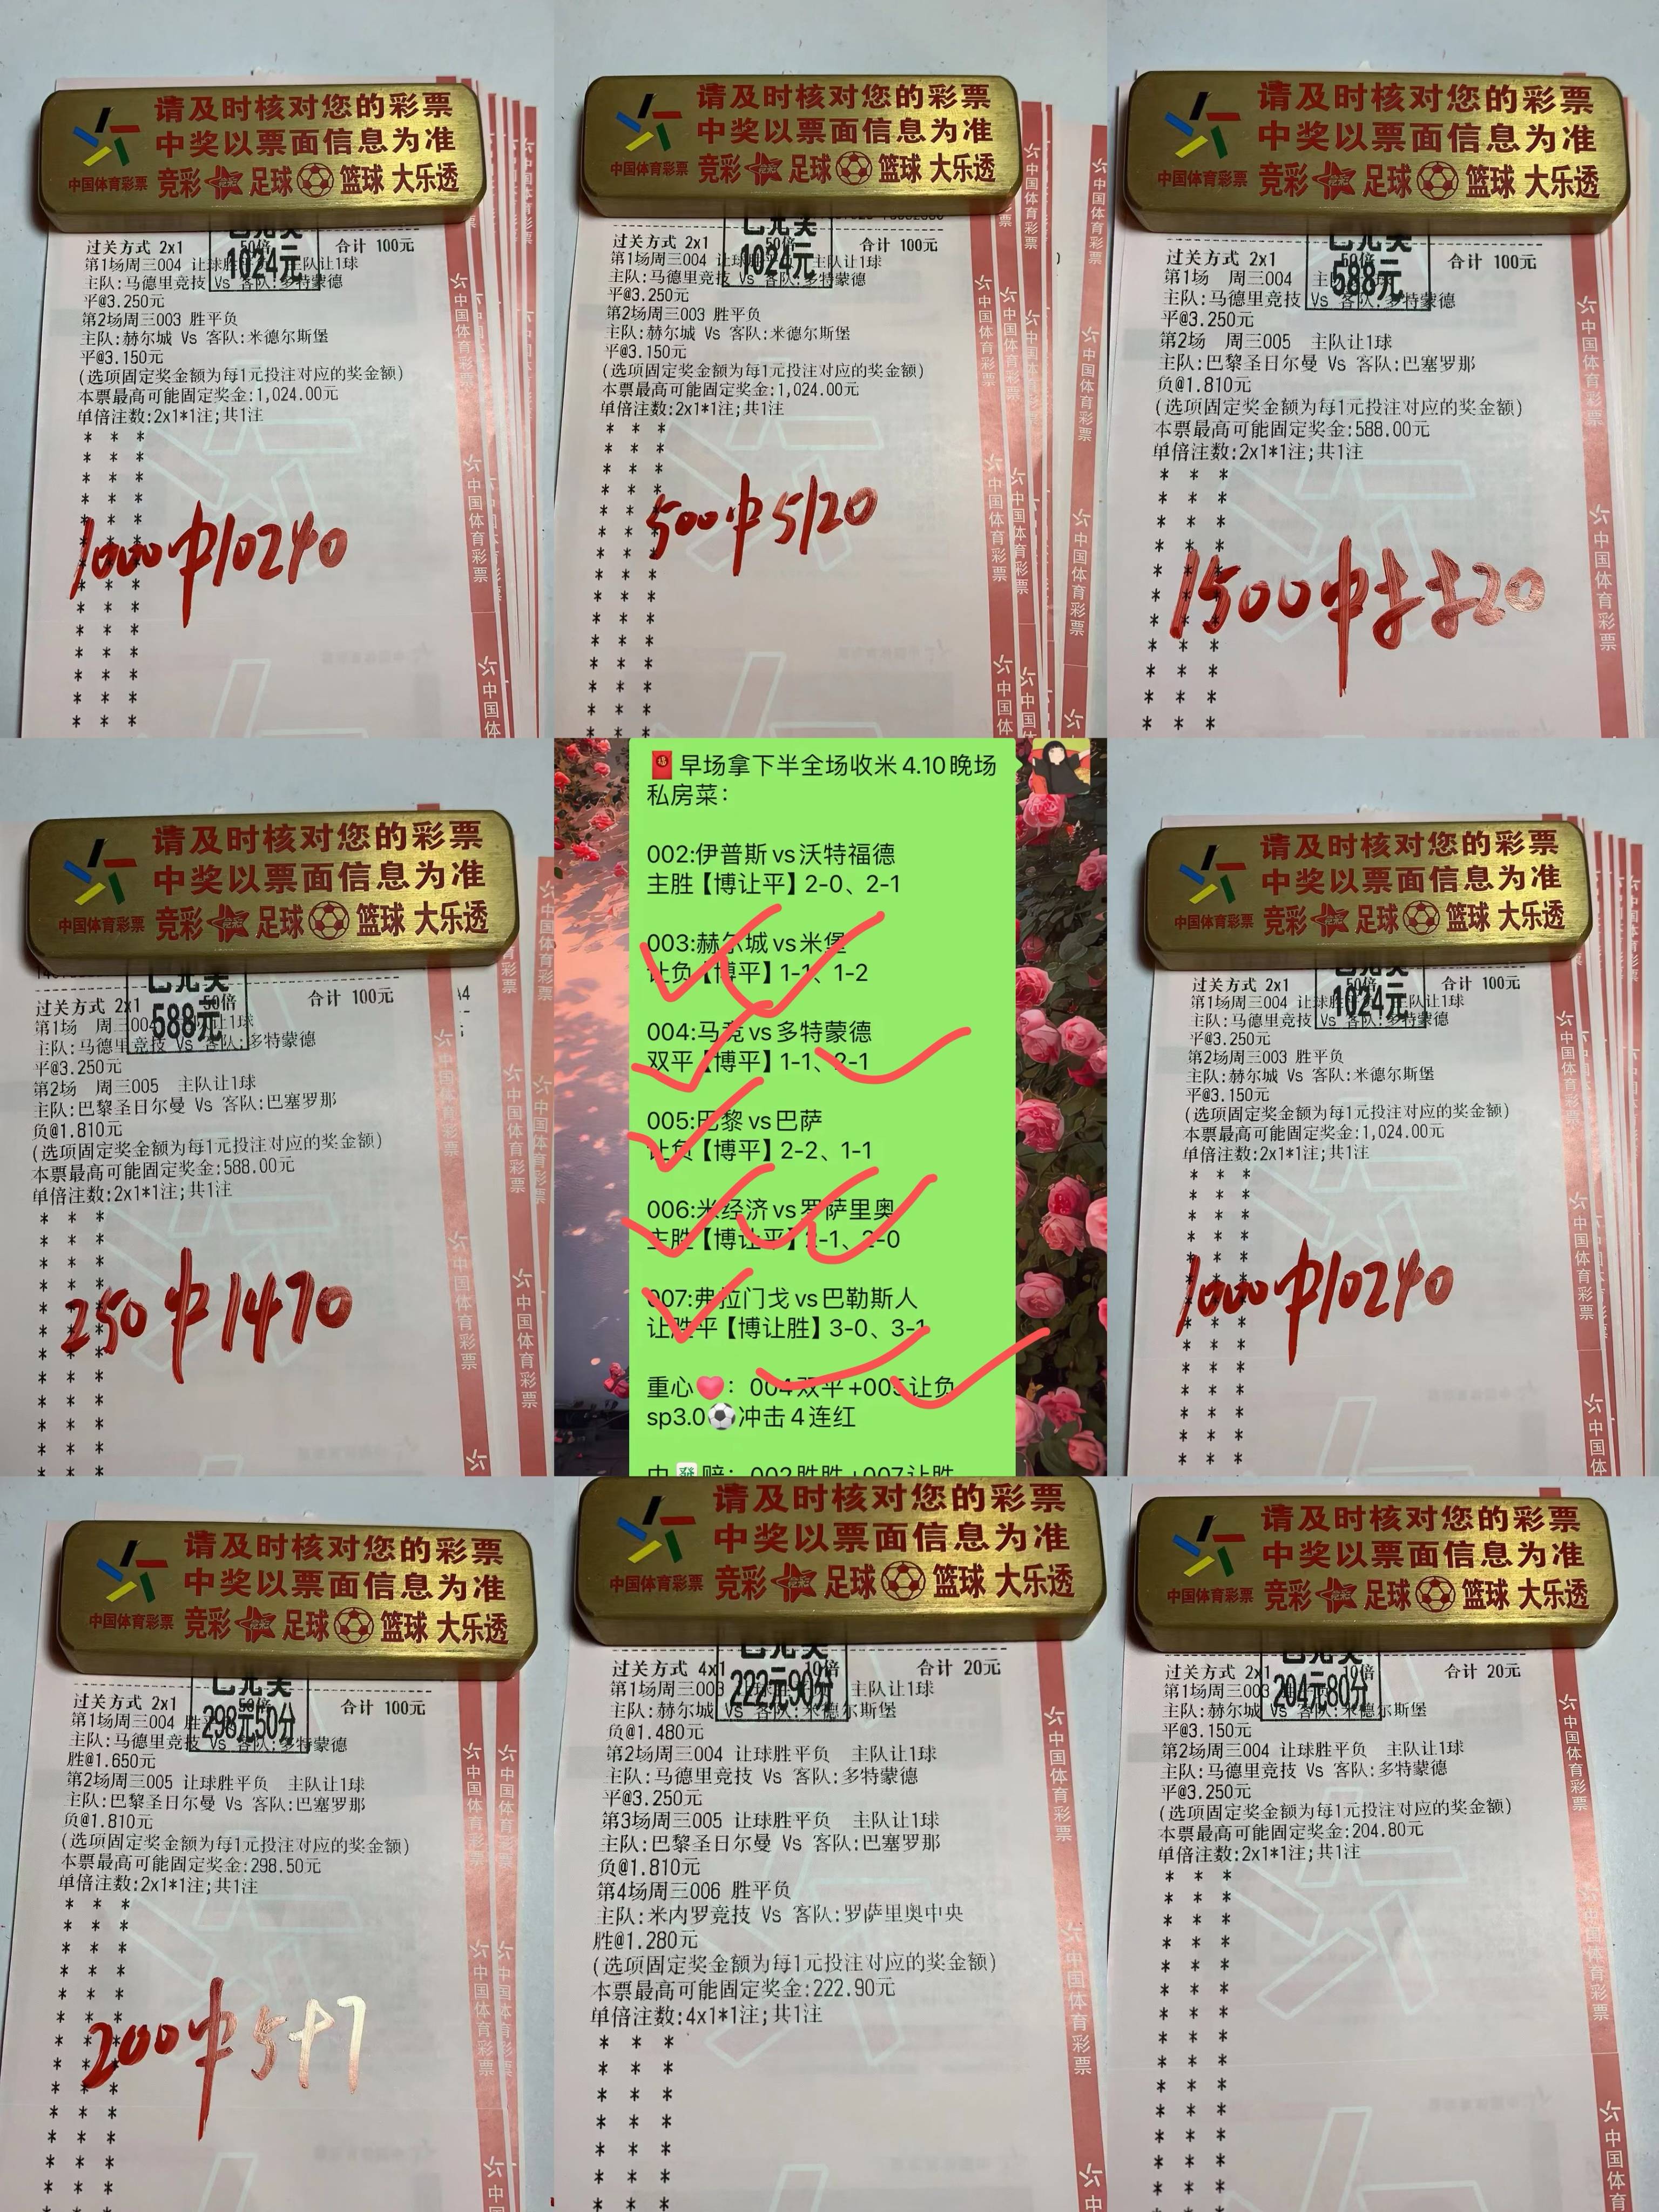 请及时核对您的彩票
中奖以票面信息为准
中国体育彩票 竞彩 足球 篮球 大乐透
过关方式 2x1 50倍 合计 100元
1024元
第1场周三004 让球胜平负 主队让1球
主队:马德里竞技 Vs 客队:多特蒙德
平@3.250元
第2场周三003 胜平负
主队:赫尔城 Vs 客队:米德尔斯堡
平@3.150元
(选项固定奖金额为每1元投注对应的奖金额)
本票最高可能固定奖金:1,024.00元
单倍注数:2x1*1注;共1注
1000中10240
中国体育彩票
请及时核对您的彩票
中奖以票面信息为准
中国体育彩票 竞彩 足球 篮球 大乐透
过关方式 2x1 50倍 合计 100元
1024元
第1场周三004 让球胜平负 主队让1球
主队:马德里竞技 Vs 客队:多特蒙德
平@3.250元
第2场周三003 胜平负
主队:赫尔城 Vs 客队:米德尔斯堡
平@3.150元
(选项固定奖金额为每1元投注对应的奖金额)
本票最高可能固定奖金:1,024.00元
单倍注数:2x1*1注;共1注
500中5120
中国体育彩票
请及时核对您的彩票
中奖以票面信息为准
中国体育彩票 竞彩 足球 篮球 大乐透
已兑奖
过关方式 2x1 50倍 合计 100元
588元
第1场 周三004 主队让1球
主队:马德里竞技 Vs 客队:多特蒙德
平@3.250元
第2场 周三005 主队让1球
主队:巴黎圣日尔曼 Vs 客队:巴塞罗那
负@1.810元
(选项固定奖金额为每1元投注对应的奖金额)
本票最高可能固定奖金:588.00元
单倍注数:2x1*1注;共1注
1500中
20
中国体育彩票
请及时核对您的彩票
中奖以票面信息为准
中国体育彩票 竞彩 足球 篮球 大乐透
已兑奖
过关方式 2x1 50倍 合计 100元
588元
第1场 周三004 主队让1球
主队:马德里竞技 Vs 客队:多特蒙德
平@3.250元
第2场 周三005 主队让1球
主队:巴黎圣日尔曼 Vs 客队:巴塞罗那
负@1.810元
(选项固定奖金额为每1元投注对应的奖金额)
本票最高可能固定奖金:588.00元
单倍注数:2x1*1注;共1注
250中1470
中国体育彩票
🧧早场拿下半全场收米4.10晚场
私房菜：
002:伊普斯vs沃特福德
主胜【博让平】2-0、2-1
003:赫尔城vs米堡
让负【博平】1-1、1-2
004:马竞vs多特蒙德
双平【博平】1-1、2-1
005:巴黎vs巴萨
让负【博平】2-2、1-1
006:米经济vs罗萨里奥
主胜【博让平】2-1、2-0
007:弗拉门戈vs巴勒斯人
让胜平【博让胜】3-0、3-1
重心❤️：004双平+005让负
sp3.0⚽冲击4连红
中發赔：002胜胜+007让胜
请及时核对您的彩票
中奖以票面信息为准
中国体育彩票 竞彩 足球 篮球 大乐透
过关方式 2x1 50倍 合计 100元
1024元
第1场周三004 让球胜平负 主队让1球
主队:马德里竞技 Vs 客队:多特蒙德
平@3.250元
第2场周三003 胜平负
主队:赫尔城 Vs 客队:米德尔斯堡
平@3.150元
(选项固定奖金额为每1元投注对应的奖金额)
本票最高可能固定奖金:1,024.00元
单倍注数:2x1*1注;共1注
1000中10240
中国体育彩票
请及时核对您的彩票
中奖以票面信息为准
中国体育彩票 竞彩 足球 篮球 大乐透
已兑奖
过关方式 2x1 50倍 合计 100元
298元50分
第1场周三004 胜平负
主队:马德里竞技 Vs 客队:多特蒙德
胜@1.650元
第2场周三005 让球胜平负 主队让1球
主队:巴黎圣日尔曼 Vs 客队:巴塞罗那
负@1.810元
(选项固定奖金额为每1元投注对应的奖金额)
本票最高可能固定奖金:298.50元
单倍注数:2x1*1注;共1注
200中5
中国体育彩票
请及时核对您的彩票
中奖以票面信息为准
中国体育彩票 竞彩 足球 篮球 大乐透
过关方式 4x1 10倍 合计 20元
222元90分
第1场周三003 让球胜平负 主队让1球
主队:赫尔城 Vs 客队:米德尔斯堡
负@1.480元
第2场周三004 让球胜平负 主队让1球
主队:马德里竞技 Vs 客队:多特蒙德
平@3.250元
第3场周三005 让球胜平负 主队让1球
主队:巴黎圣日尔曼 Vs 客队:巴塞罗那
负@1.810元
第4场周三006 胜平负
主队:米内罗竞技 Vs 客队:罗萨里奥中央
胜@1.280元
(选项固定奖金额为每1元投注对应的奖金额)
本票最高可能固定奖金:222.90元
单倍注数:4x1*1注;共1注
中国体育彩票
请及时核对您的彩票
中奖以票面信息为准
中国体育彩票 竞彩 足球 篮球 大乐透
过关方式 2x1 10倍 合计 20元
204元80分
第1场周三003 胜平负
主队:赫尔城 Vs 客队:米德尔斯堡
平@3.150元
第2场周三004 让球胜平负 主队让1球
主队:马德里竞技 Vs 客队:多特蒙德
平@3.250元
(选项固定奖金额为每1元投注对应的奖金额)
本票最高可能固定奖金:204.80元
单倍注数:2x1*1注;共1注
中国体育彩票